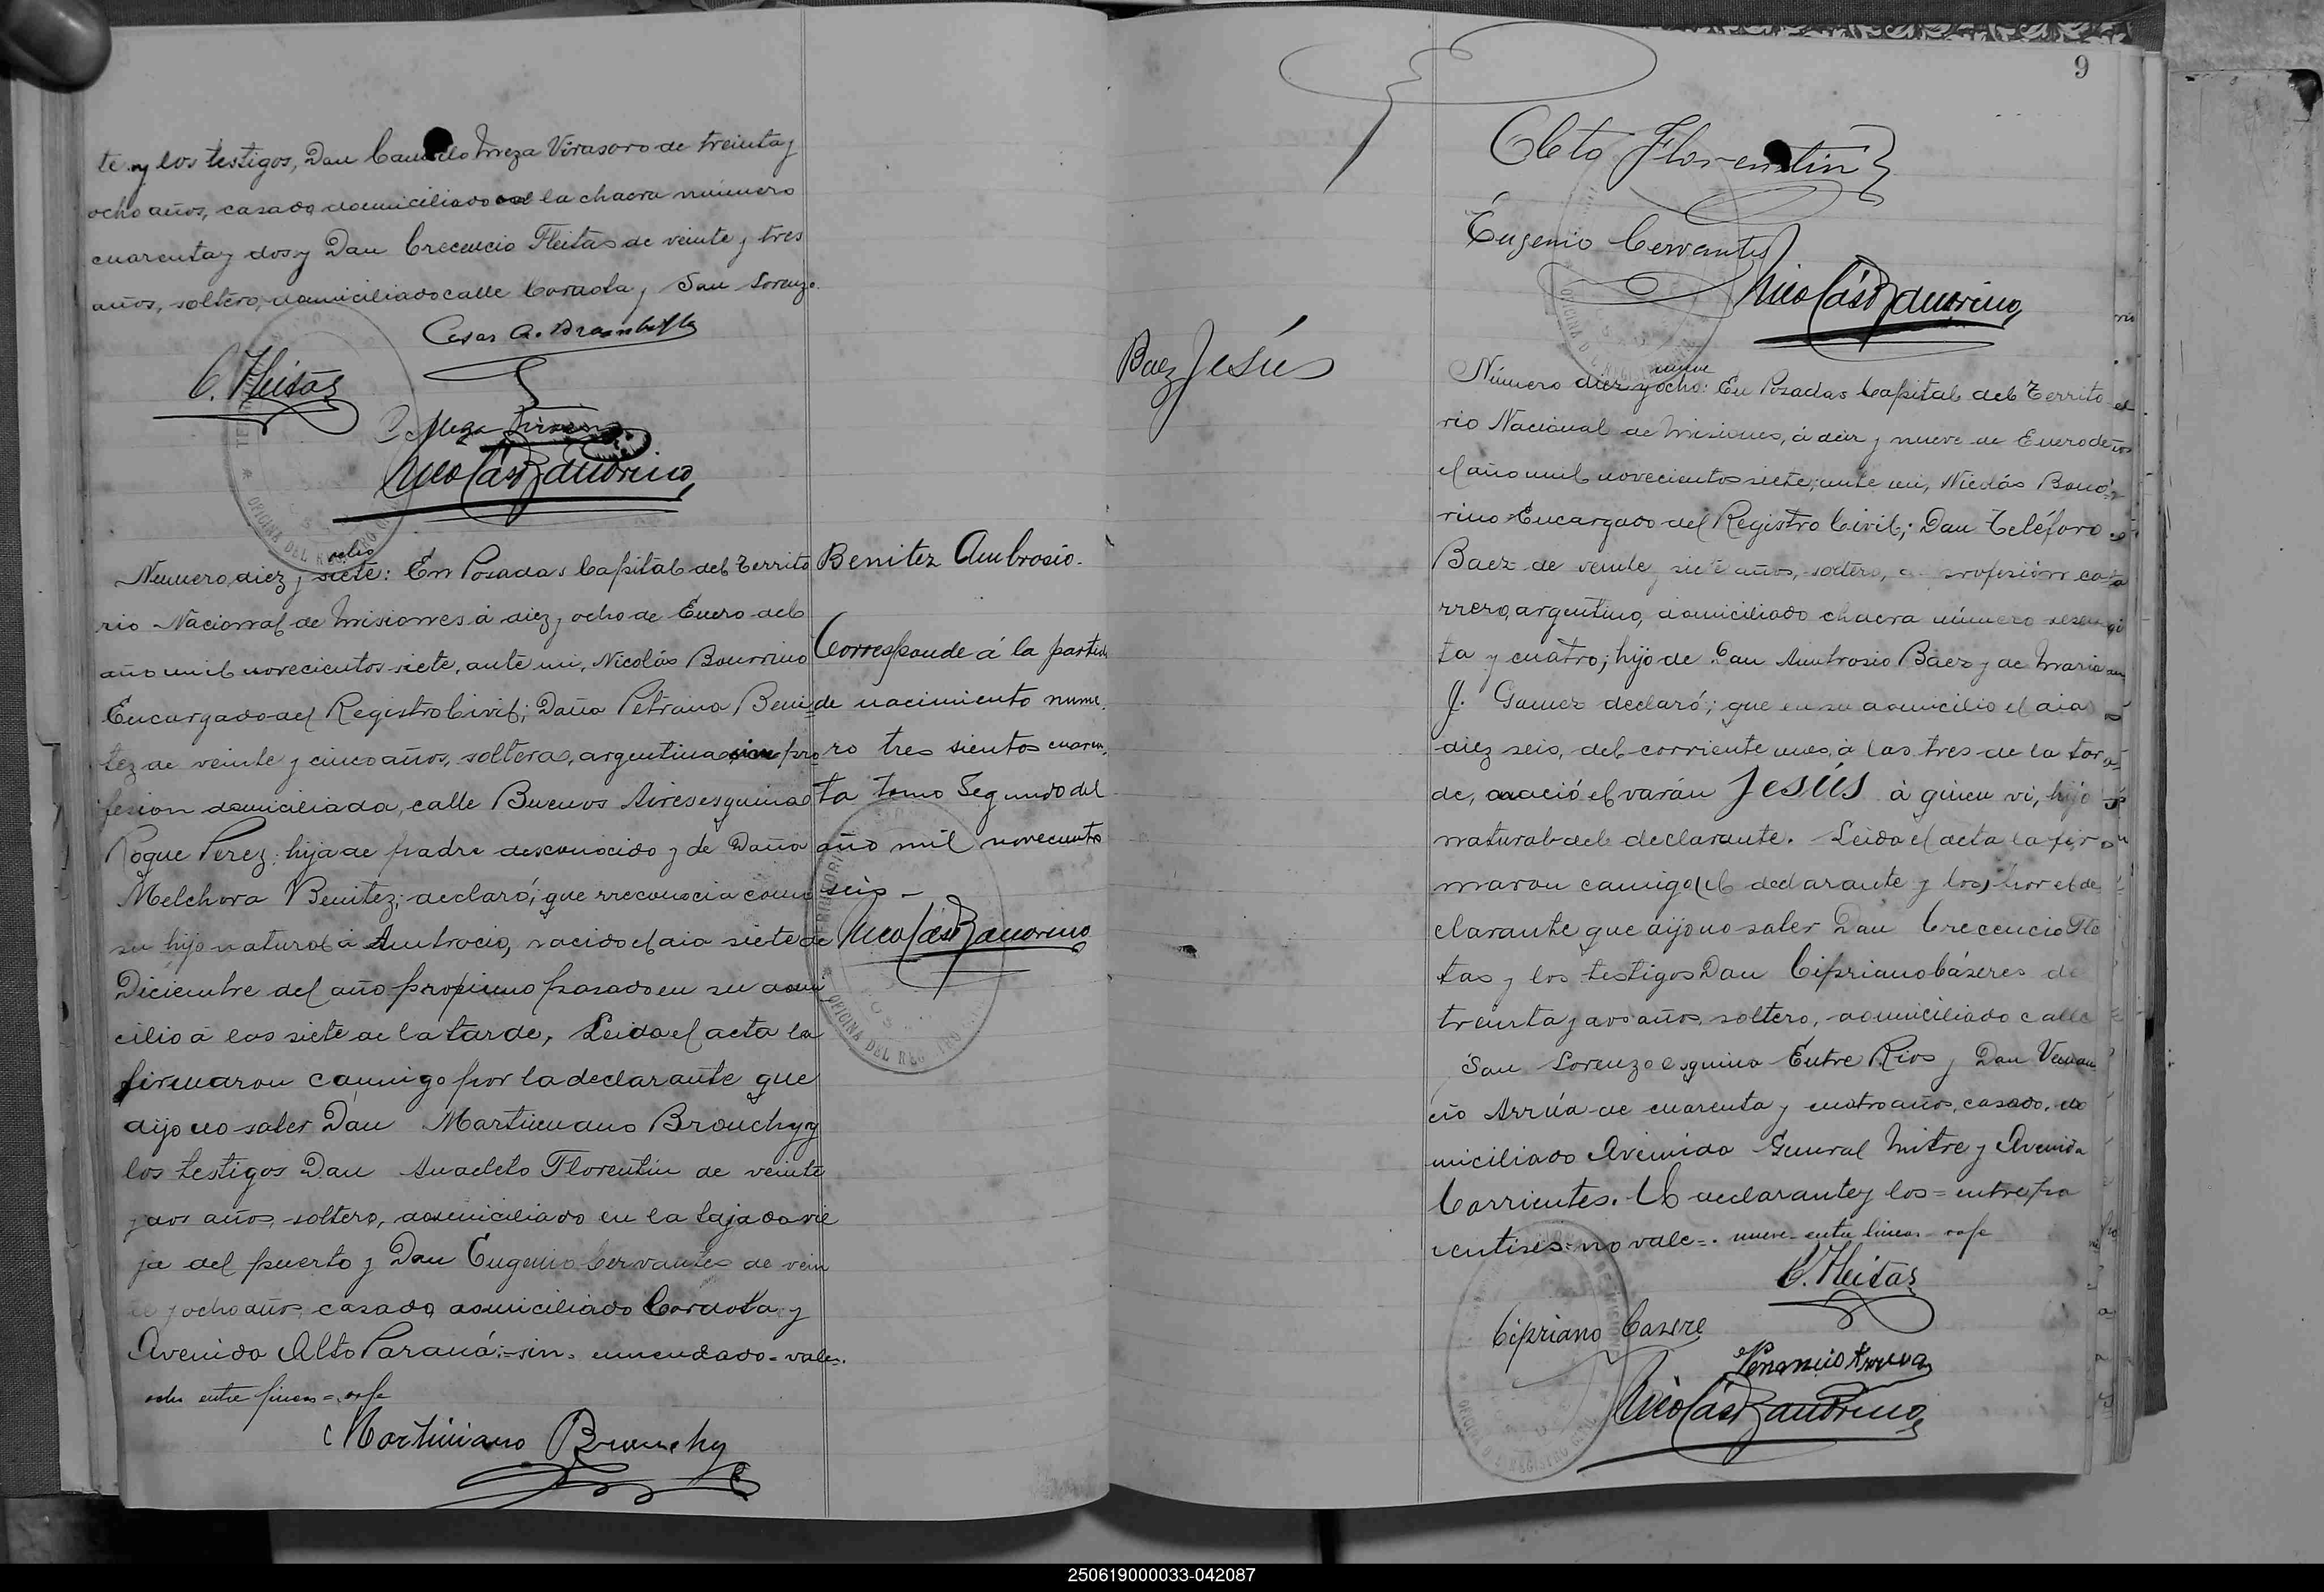 te y los testigos, Don Camilo Meza Virasoro de treinta y
ocho años, casado, domiciliado en la chacra número
cuarenta y dos y Don Crecencio Fleitas de veinte y tres
años, soltero, domiciliado calle Cordoba y San Lorenzo.
Cesar A. Brambilla
C. Fleitas
C Meza Viraso
Nicolás Bonorino
ocho
Numero diez y siete: En Posadas Capital del Territo
rio Nacional de Misiones á diez y ocho de Enero del
año mil novecientos siete, ante mi, Nicolás Bonorino
Encargado del Registro Civil; Doña Petrona Beni
tez de veinte y cinco años, soltera, argentina sin pro
fesion domiciliada, calle Buenos Aires esquina
Roque Perez; hija de padre desconocido y de Doña
Melchora Benitez; declaró; que rreconocia como
su hijo natural á Ambrocio, nacido el dia siete de
Diciembre del año propimo pasado en su domi
cilio á las siete de la tarde, Leida el acta la
firmaron conmigo por la declarante que
dijo no saber Don Martiniano Brouchy y
los testigos Don Anacleto Florentin de veinte
y dos años, soltero, domiciliado en la bajada vie
ja del puerto y Don Eugenio Cervantes de vein
te y ocho años, casado, domiciliado Cordoba y
Avenida Alto Paraná:=sin=enmendado=vale.
ocho entre lineas = vale
Martiniano Brouchy
Benitez Ambrosio.
Corresponde á la partida
de nacimiento nume
ro tres sientos cuaren
ta tomo Segundo del
año mil novecientos
seis -
Nicolás Bonorino
9
Cleto Florentin
Eugenio Cervantes
Nicolás Bonorino
Baez Jesús
nueve
Número diez y ocho: En Posadas Capital del Territo
rio Nacional de Misiones, á diez y nueve de Enero d
el año mil novecientos siete; ante mi, Nicolás Bono
rino Encargado del Registro Civil; Don Teléforo
Baez de veinte y siete años, soltero, de profesión ca
rrero, argentino, domiciliado chacra número sesen
ta y cuatro; hijo de Don Ambrosio Baez y de Maria
J. Gamez declaró; que en su domicilio el dia
diez seis, del corriente mes, á las tres de la tar
de, nació el varón Jesús á quien vi, hijo
natural del declarante. Leida el acta la fir
maron conmigo (el declarante y los) por el de
clarante que dijo no saber Don Crecencio Flei
tas y los testigos Don Cipriano Cáseres de
treinta y dos años, soltero, domiciliado calle
San Lorenzo esquina Entre Rios y Don Venan
cio Arrúa de cuarenta y cuatro años, casado, do
miciliado Avenida General Mitre y Avenida
Corrientes. El declarante y los = entre pa
rentises = no vale =. nueve entre lineas vale
C. Fleitas
Cipriano Casere
Venancio Arrua
Nicolás Bonorino
250619000033-042087